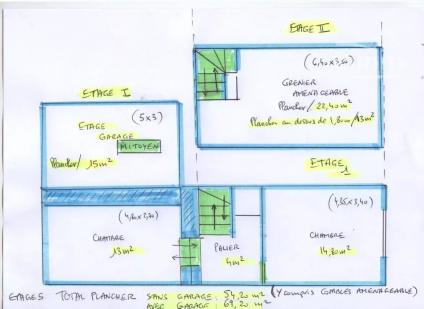 ETAGE II
(6,40 x 3,50)
GRENIER
AMENAGEABLE
Plancher / 22,40 m²
Plancher au dessus de 1,80m / 13 m²
ETAGE I
(5 x 3)
ETAGE
GARAGE
MITOYEN
Plancher / 15 m²
ETAGE 1
(4,35 x 3,40)
CHAMBRE
13 m²
PALIER
4 m²
CHAMBRE
14,80 m²
ETAGES TOTAL PLANCHER SANS GARAGE : 54,20 m² (Y compris COMBLES AMENAGEABLE)
AVEC GARAGE : 69,20 m²